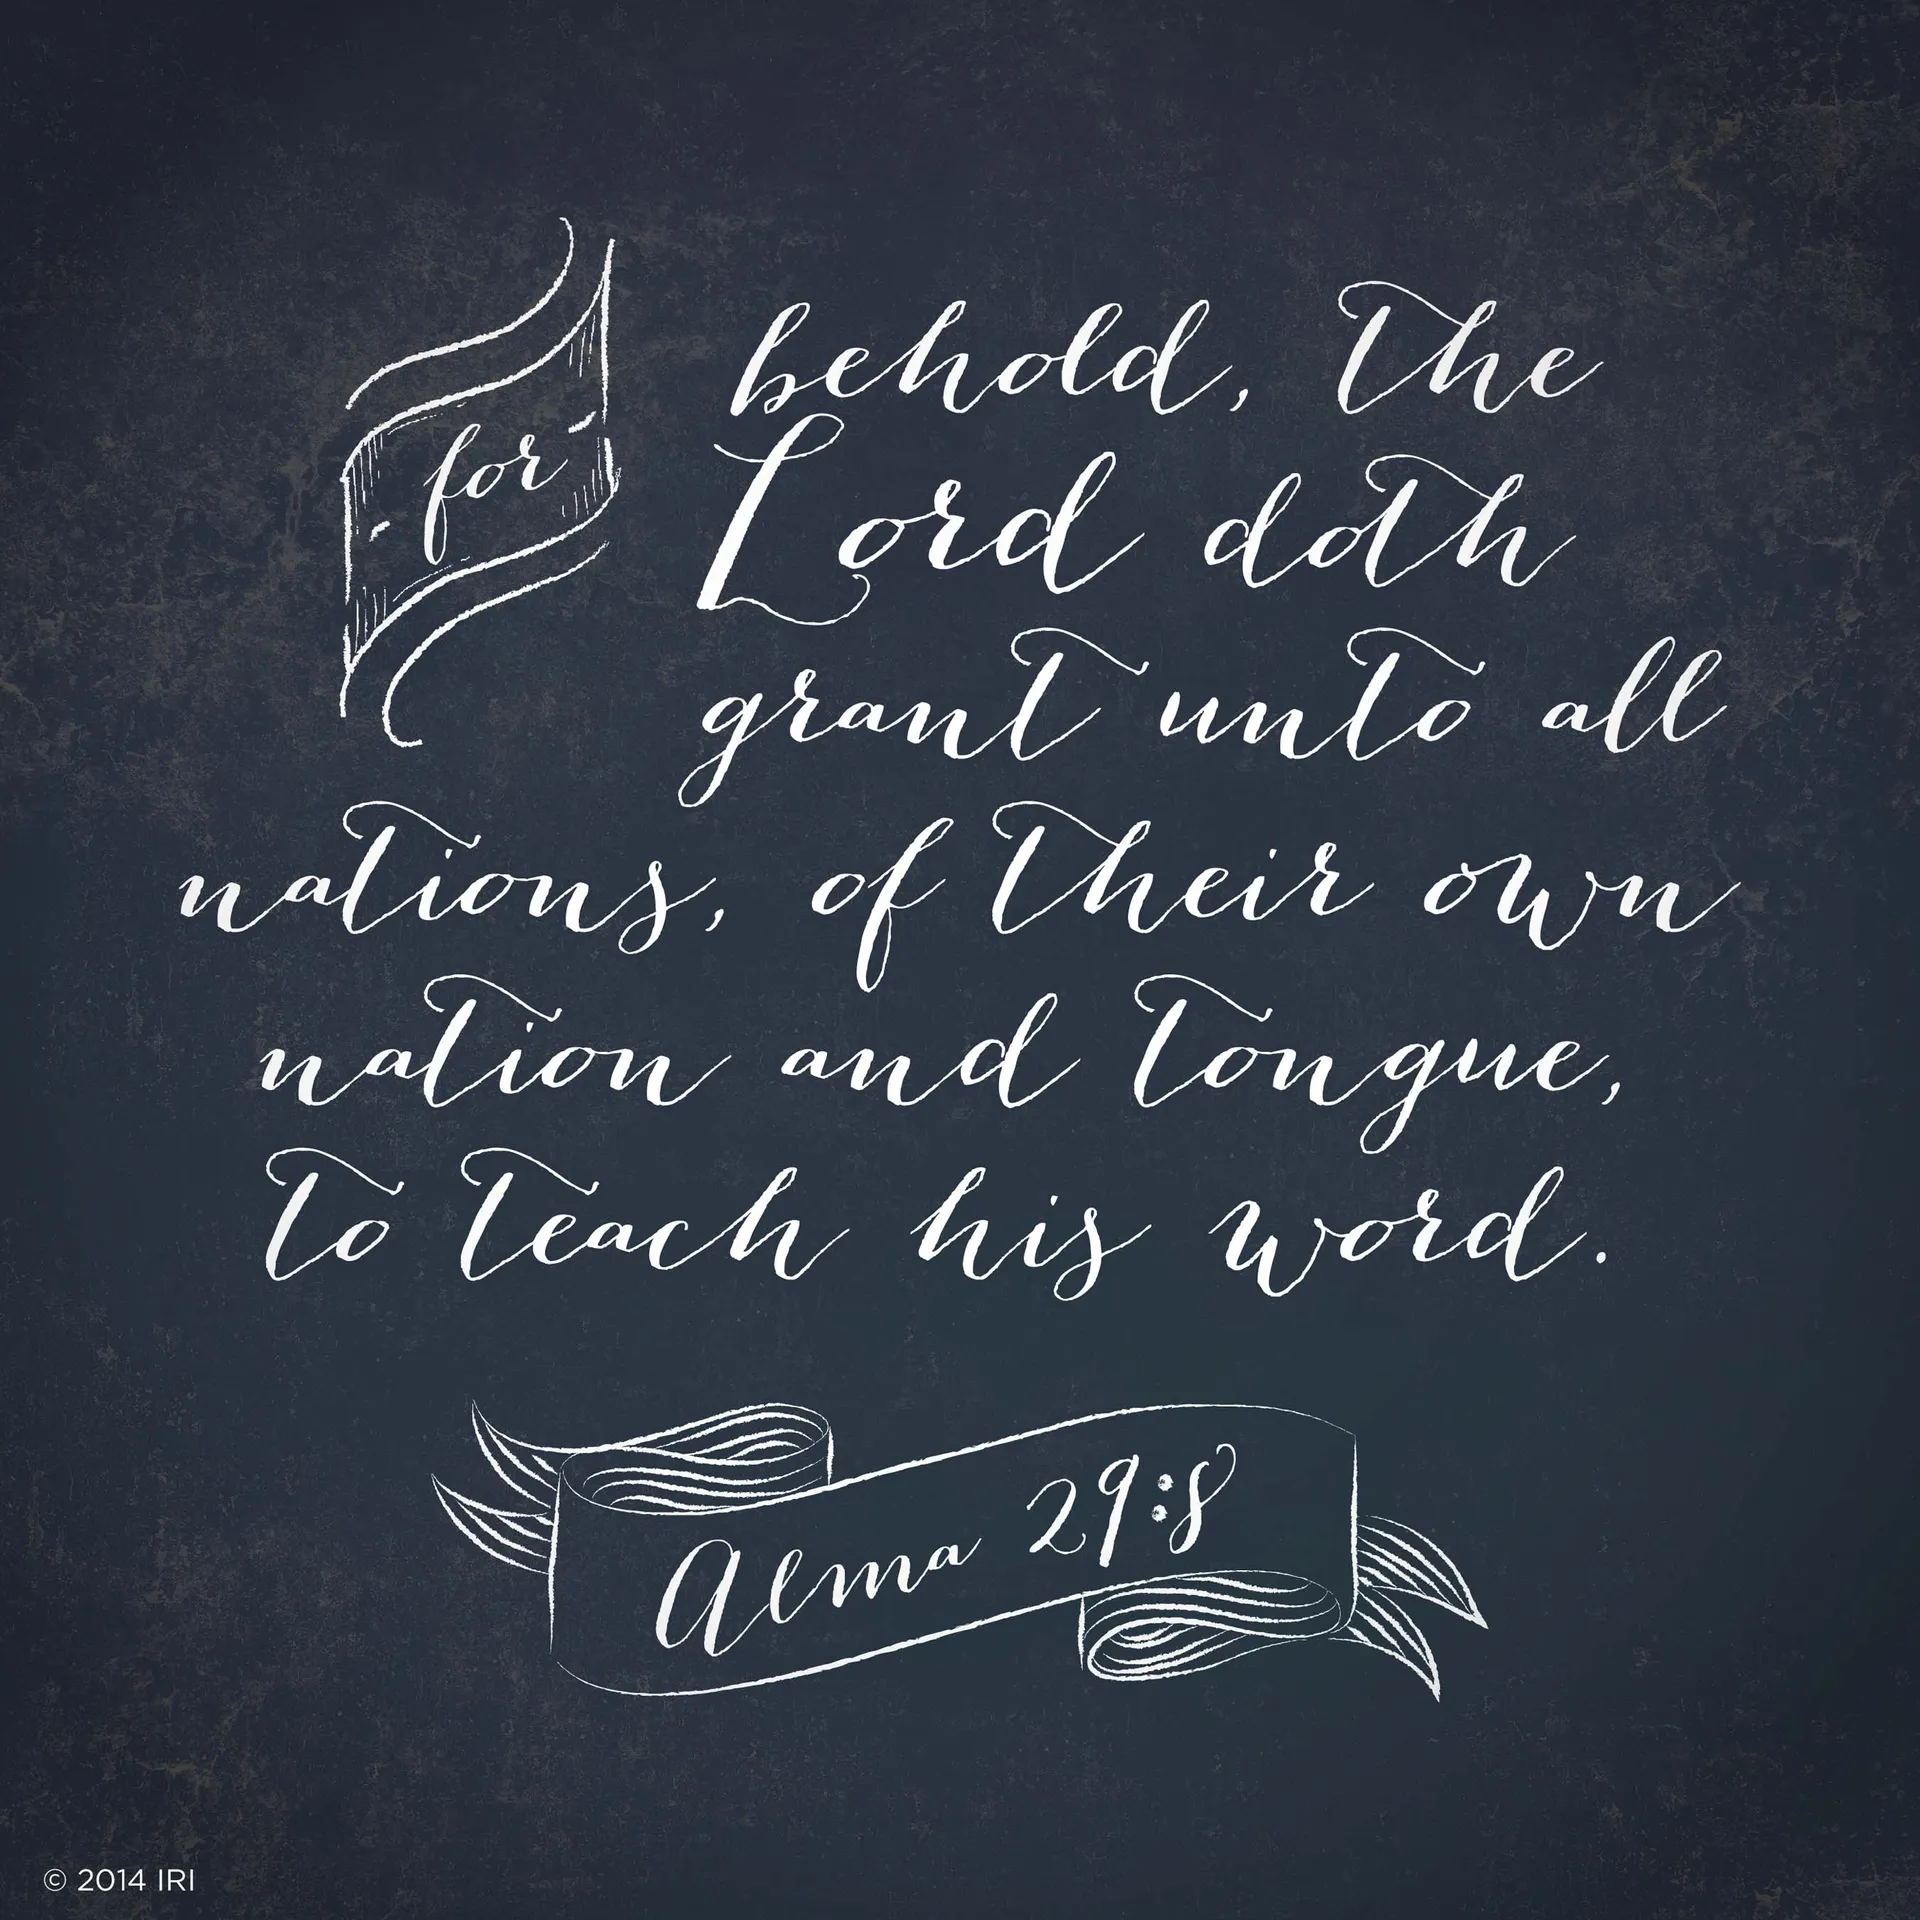 for
behold, the
Lord doth
grant unto all
nations, of their own
nation and tongue,
to teach his word.
Alma 29:8
© 2014 IRI